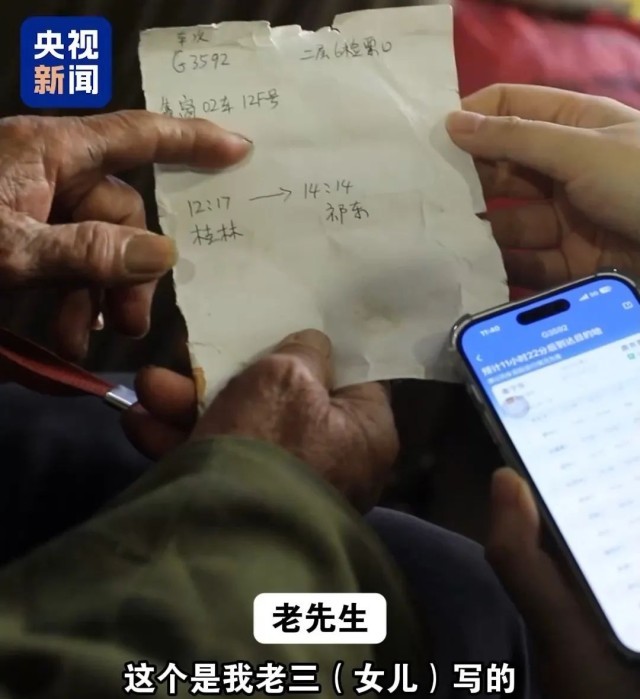 央视
新闻
车次
G3592 二层6检票口
靠窗 02车 12F号
12:17 → 14:14
桂林 祁东
11:40
G3592
预计11小时22分后到达目的地
老先生
这个是我老三（女儿）写的